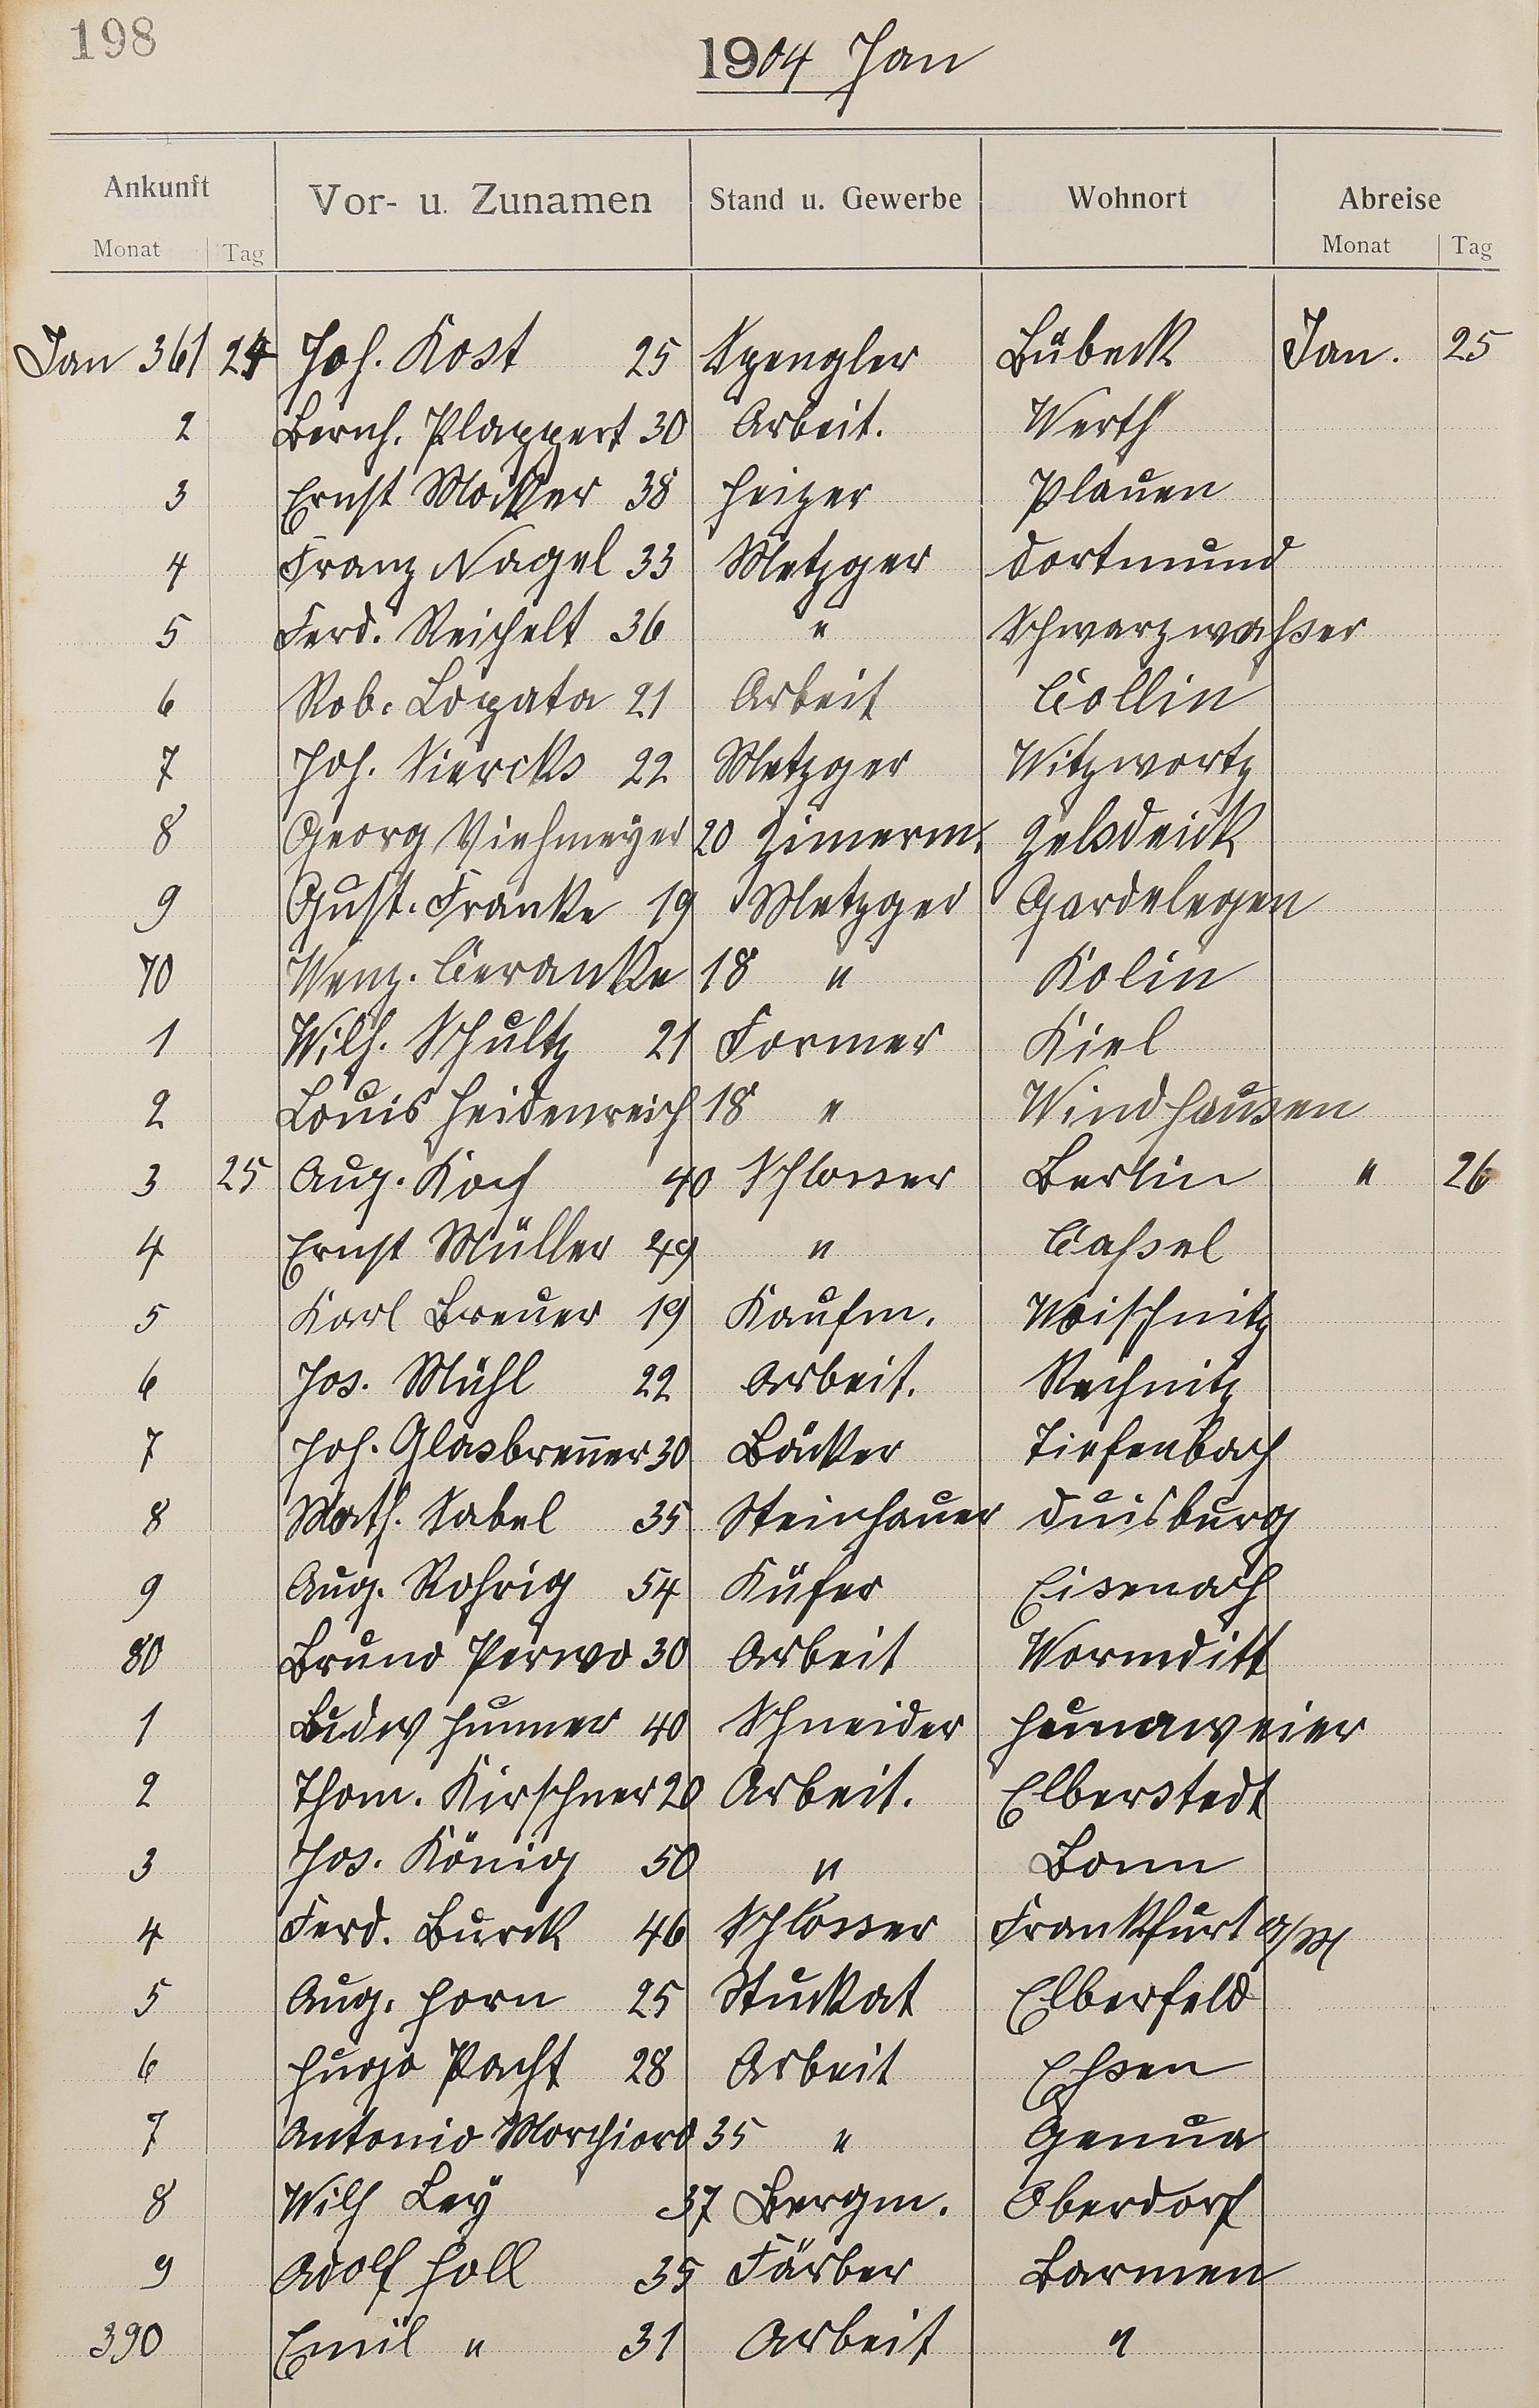 198
1904 Jan
Ankunft Vor- u. Zunamen Stand u. Gewerbe Wohnort Abreise
Monat Tag Monat Tag
Jan 361 24 Joh. Kost 25 Spengler Lübeck Jan. 25
2 Bernh. Plappert 30 Arbeit. Werth
3 Ernst Mocker 38 Heizer Plauen
4 Franz Nagel 33 Metzger Dortmund
5 Ferd. Reichelt 36 " Schwarzwasser
6 Rob. Lopata 21 Arbeit Collin
7 Joh. Siercks 22 Metzger Witzwort
8 Georg Viehmeyer 20 Zimerm.
9 Gust. Franke 19 Metzger Gardelegen
70 Wenz. Ceranke 18 " Kolin
1 Wilh. Schultz 21 Former Kiel
2 Louis Heidenreich 18 " Windhausen
3 25 Aug. Koch 40 Schlosser Berlin " 26
4 Ernst Müller 49 " Cassel
5 Karl Breuer 19 Kaufm. Woischnitz
6 Jos. Mühl 22 Arbeit. Rechnitz
7 Joh. Glasbren̄er 30 Bäcker Tiefenbach
8 Math. Sabel 35 Steinhauer Duisburg
9 Aug. Rohrig 54 Küfer Eisenach
80 Bruno Perwo 30 Arbeit Wormditt
1 Ludw Hummer 40 Schneider Hunaweier
2 Thom. Kirschner 20 Arbeit. Elberstedt
3 Jos. König 50 " Bonn
4 Ferd. Burck 46 Schlosser Frankfurt a/M
5 Aug. Horn 25 Stuckat Elberfeld
6 Hugo Pacht 28 Arbeit Essen
7 Antonio Morchioro 35 " Genua
8 Wilh Ley 37 Bergm. Oberdorf
9 Adolf Holl 35 Färber Barmen
390 Emil " 31 Arbeit "